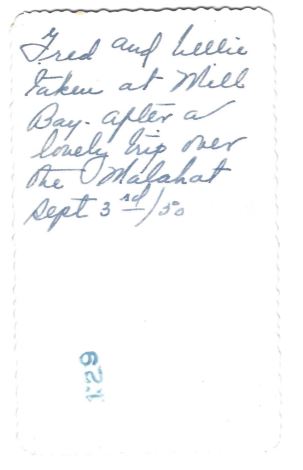 Fred and Nellie
taken at Mill
Bay. after a
lovely trip over
the Malahat
Sept 3rd/50